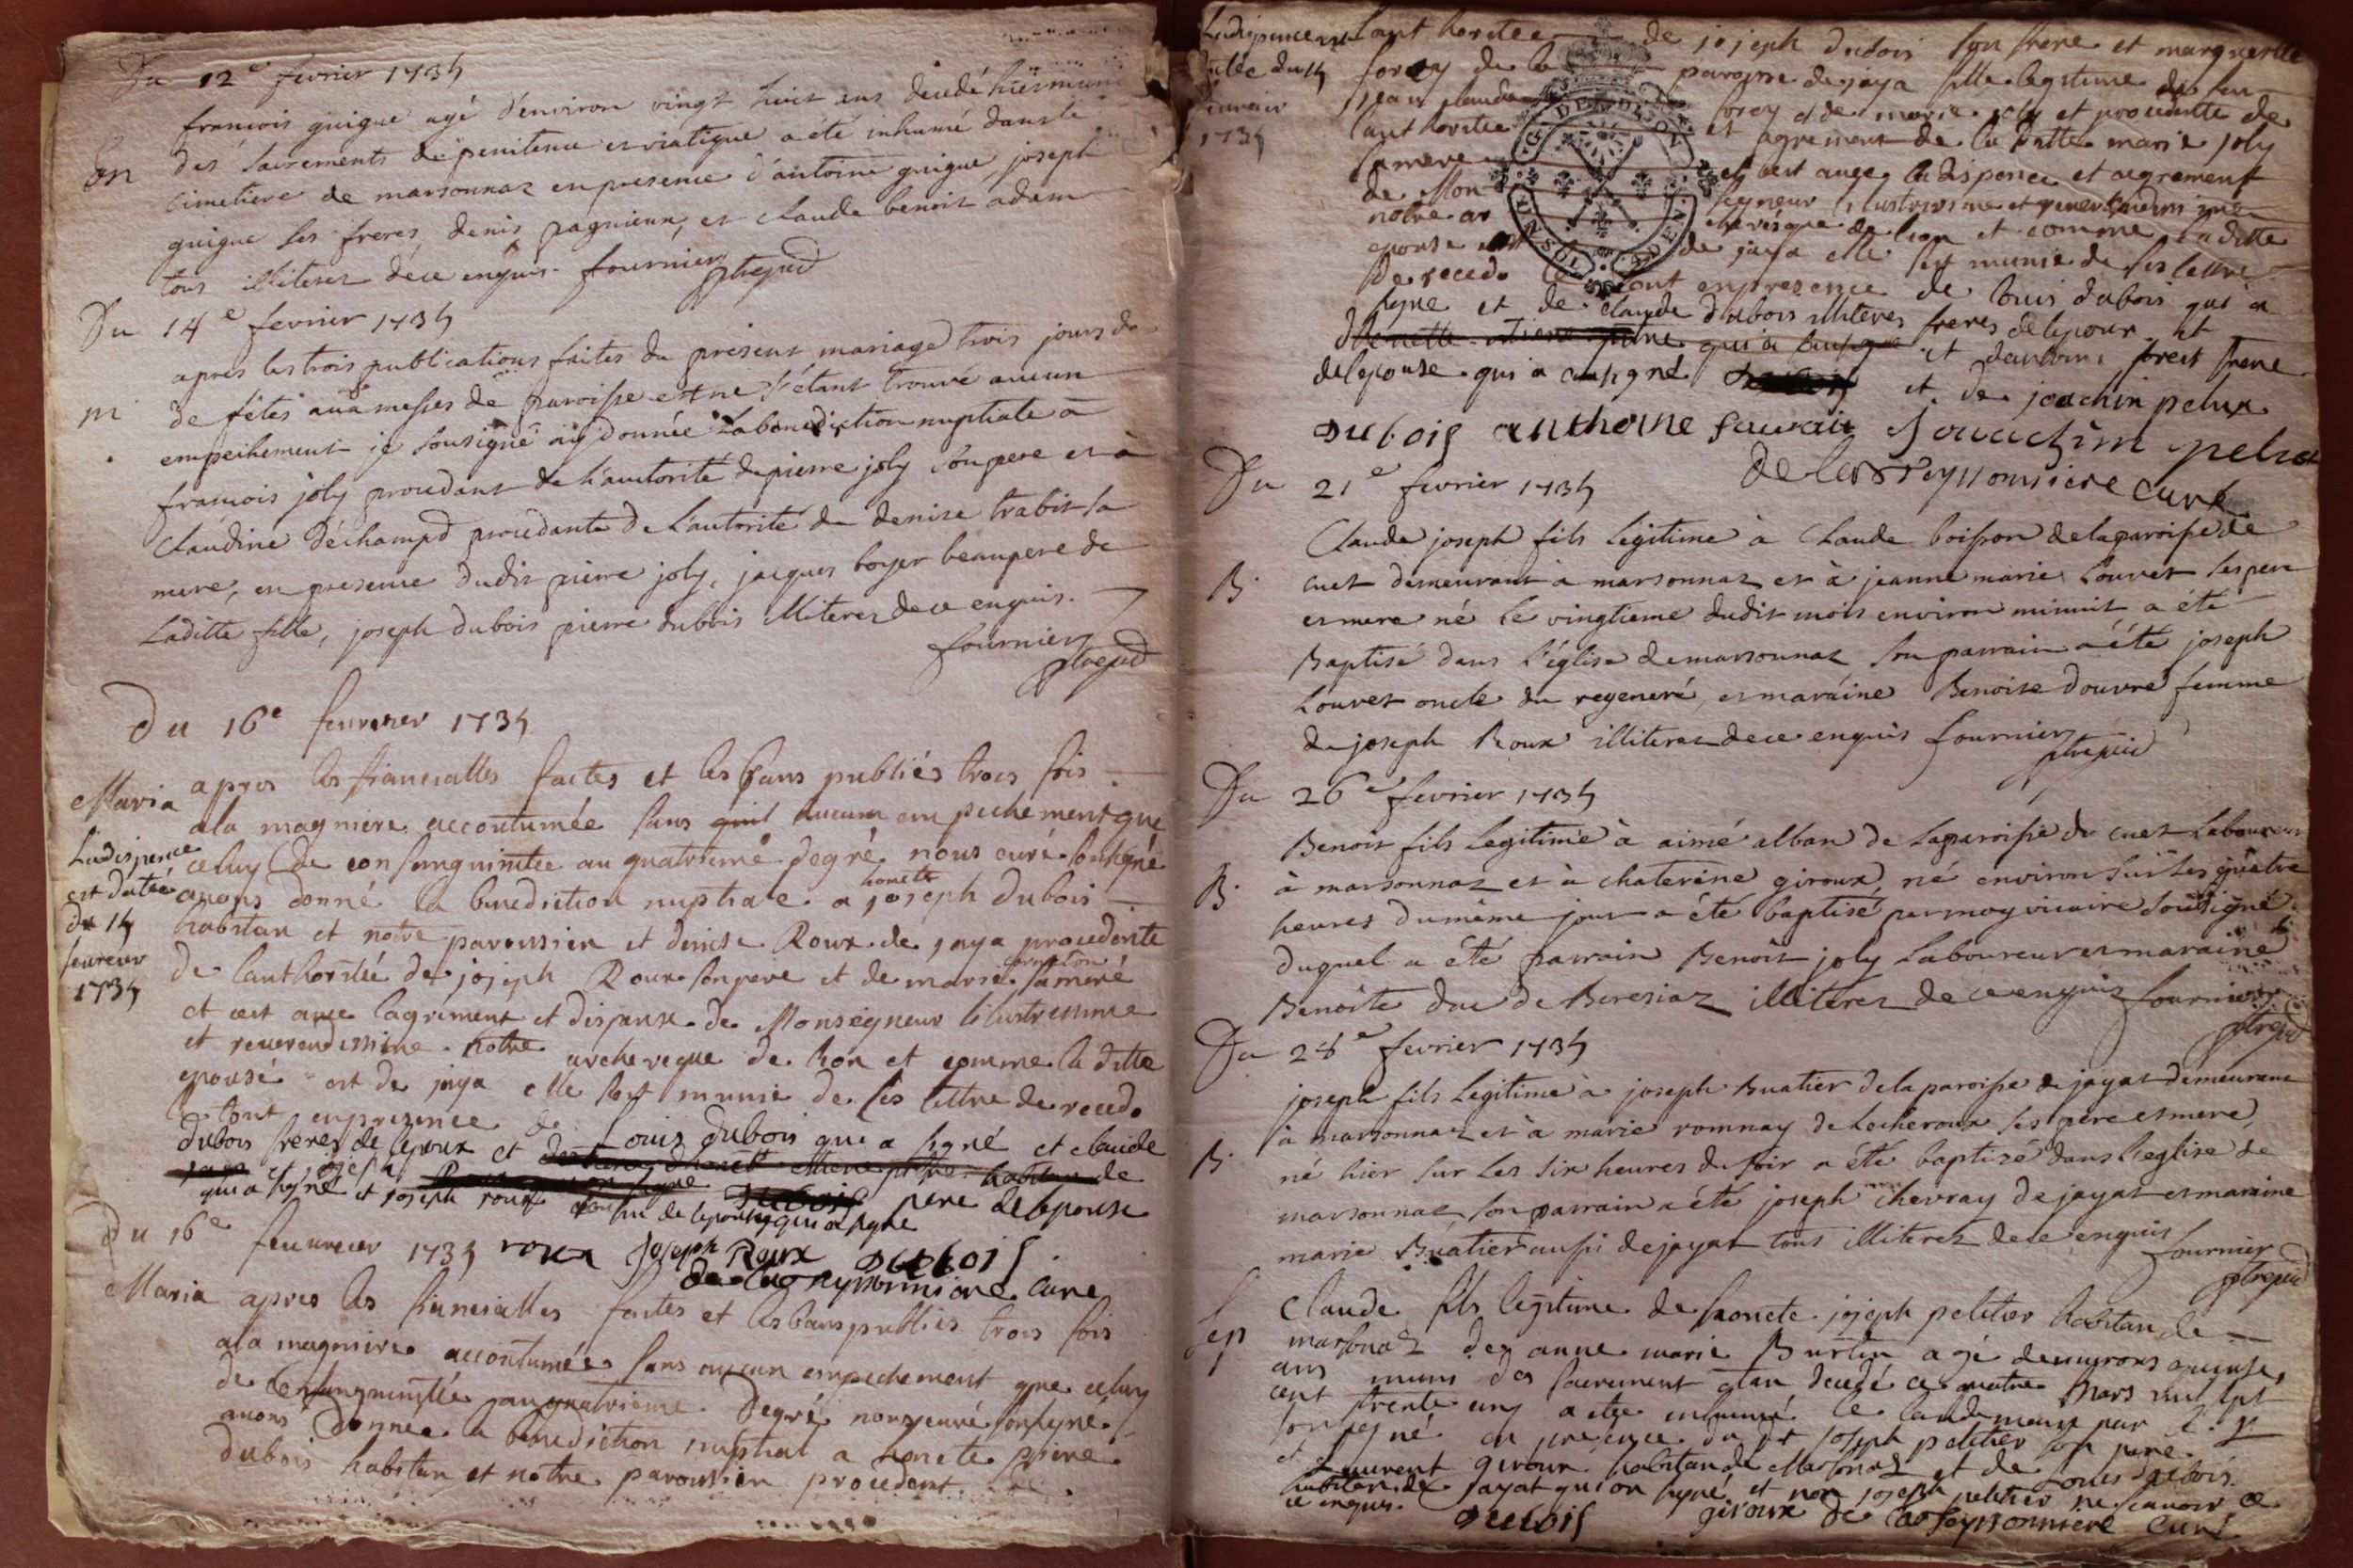 Du 12e fevrier 1734
francois guigue agé d'environ vingt huit ans decedé hier muni
des sacrements de penitence et viatique a été inhumé dans le
En
cimetiere de marsonnaz en presence d'antoine guigue, joseph
guigue ses freres, denis pagnieux, et claude benoit adam
tous illiteres de ce enquis. fournier ptre vic
Du 14e fevrier 1734
apres les trois publications faites du present mariage trois jours de
m
de fêtes aux messes de paroisse et ne s'étant trouvé aucun
empeichement je sousigné ay donnée la benediction nuptiale à
francois joly procedant de l'autorité de pierre joly son pere et à
claudine déchamp procedante de l'autorité de denise trabit sa
mere, en presence dudit pierre joly, jacques boyer beaupere de
laditte fille, joseph dubois pierre dubois illiteres de ce enquis.
fournier
ptre vic
Du 16e feuvrier 1734
Maria
apres les fiancialles faites et les bans publiés trois fois
ala magniere accoutumée sans aucun empechement que
La dispence
est datée
du 14
feuvrier
1734
celuy de consanguinitée au quatrieme degré nous curé sousigné
avons donné la benediction nuptiale a honete joseph dubois
habitan et notre paroissien et denise Roux de jaya procedente
de lauthoritée de joseph Roux son pere et de marie sa mere
et cest avec lagrément et dispense de Monseigneur lilustrissime
et reverendissime notre archeveque de lion et comme la ditte
epouse est de jaya elle sest munie de ses lettre de recedo
le tout en presence de Louis Dubois qui a signé et claude
dubois freres de lepoux et
qui a signé et joseph roux pere de lepouse
roux joseph Roux Dubois
de la teyssonniere cure
Du 16e feuvrier 1734
Maria
apres les fiancialles faites et les bans publiés trois fois
ala magniere accoutumée sans aucun empechement que celuy
de consanguinitée au quatrieme degré nous curé sousigné
avons donnee la benediction nuptial a honete pierre
dubois habitan et notre paroissien procedent de
La dispence est
datée du 14
feuvrier
1734
lauthoritee de joseph dubois son frere et marguerite
forey de la paroisse de jaya fille legitime de feu
jean claude forey et de marie joly et procedente de
lauthoritée et agrement de la ditte marie joly
sa mere et cest avec la dispence et agrement
de Monseigneur lilustrissime et reverendissime
notre archevêque de lion et comme la ditte
epouse est de jaya elle sest munie de ses lettre
de recedo le tout en presence de louis dubois qui a
signe et de claude dubois illiteres freres de lepoux et
et danthoine foret frere
de lepouse qui a ausi signé et de joachin pelux
Dubois anthoine jouachim pelux
de la teyssonniere curé
Du 21e fevrier 1734
Claude joseph fils legitime à claude boisson de la paroisse de
B.
cuet demeurant à marsonnaz et à jeanne marie louvet ses pere
et mere né le vingtieme dudit mois environ minuit a été
Baptisé dans l'église de marsonnaz son parrain a été joseph
Louvet oncle du regeneré, et maraine Benoite douvre femme
de joseph Roux illiteres de ce enquis fournier
ptre vic
Du 26e fevrier 1734
Benoit fils legitime à aimé alban de la paroisse de cuet laboureur
B.
à marsonnaz et à chaterine giroux, né environ sur les quatre
heures du même jour a été baptisé par moy vicaire sousigné
duquel a été parrain Benoit joly laboureur et maraine
Benoite duc de Beresiaz illiteres de ce enquis fournier
ptre vic
Du 28e fevrier 1734
joseph fils legitime à joseph Buatier de la paroisse de jayat demeurant
à marsonnaz et à marie romnay de lecheroux ses père et mere,
B.
né hier sur les six heures du soir a été baptisé dans l'eglise de
marsonnaz son parrain a été joseph chevray de jayat et maraine
marie Buatier aussi de jayat tous illiteres de ce enquis
fournier
ptre vic
Sep
Claude fils legitime de honete joseph peletier habitan de
marsonaz et de anne marie Burtin agé denvirons quinse
ans muni des sacrement etan decedé ce quatre Mars mil sept
cent trente a etée inhumé le landemain par
sousigné en presence du dit joseph peletier son pere
et Laurent giroux habitan de Marsonaz et de Louis dubois
habitan de jayat qui on signé et non joseph peletier ne savoir
ce enquis.
Dubois giroux de la teyssonniere curé